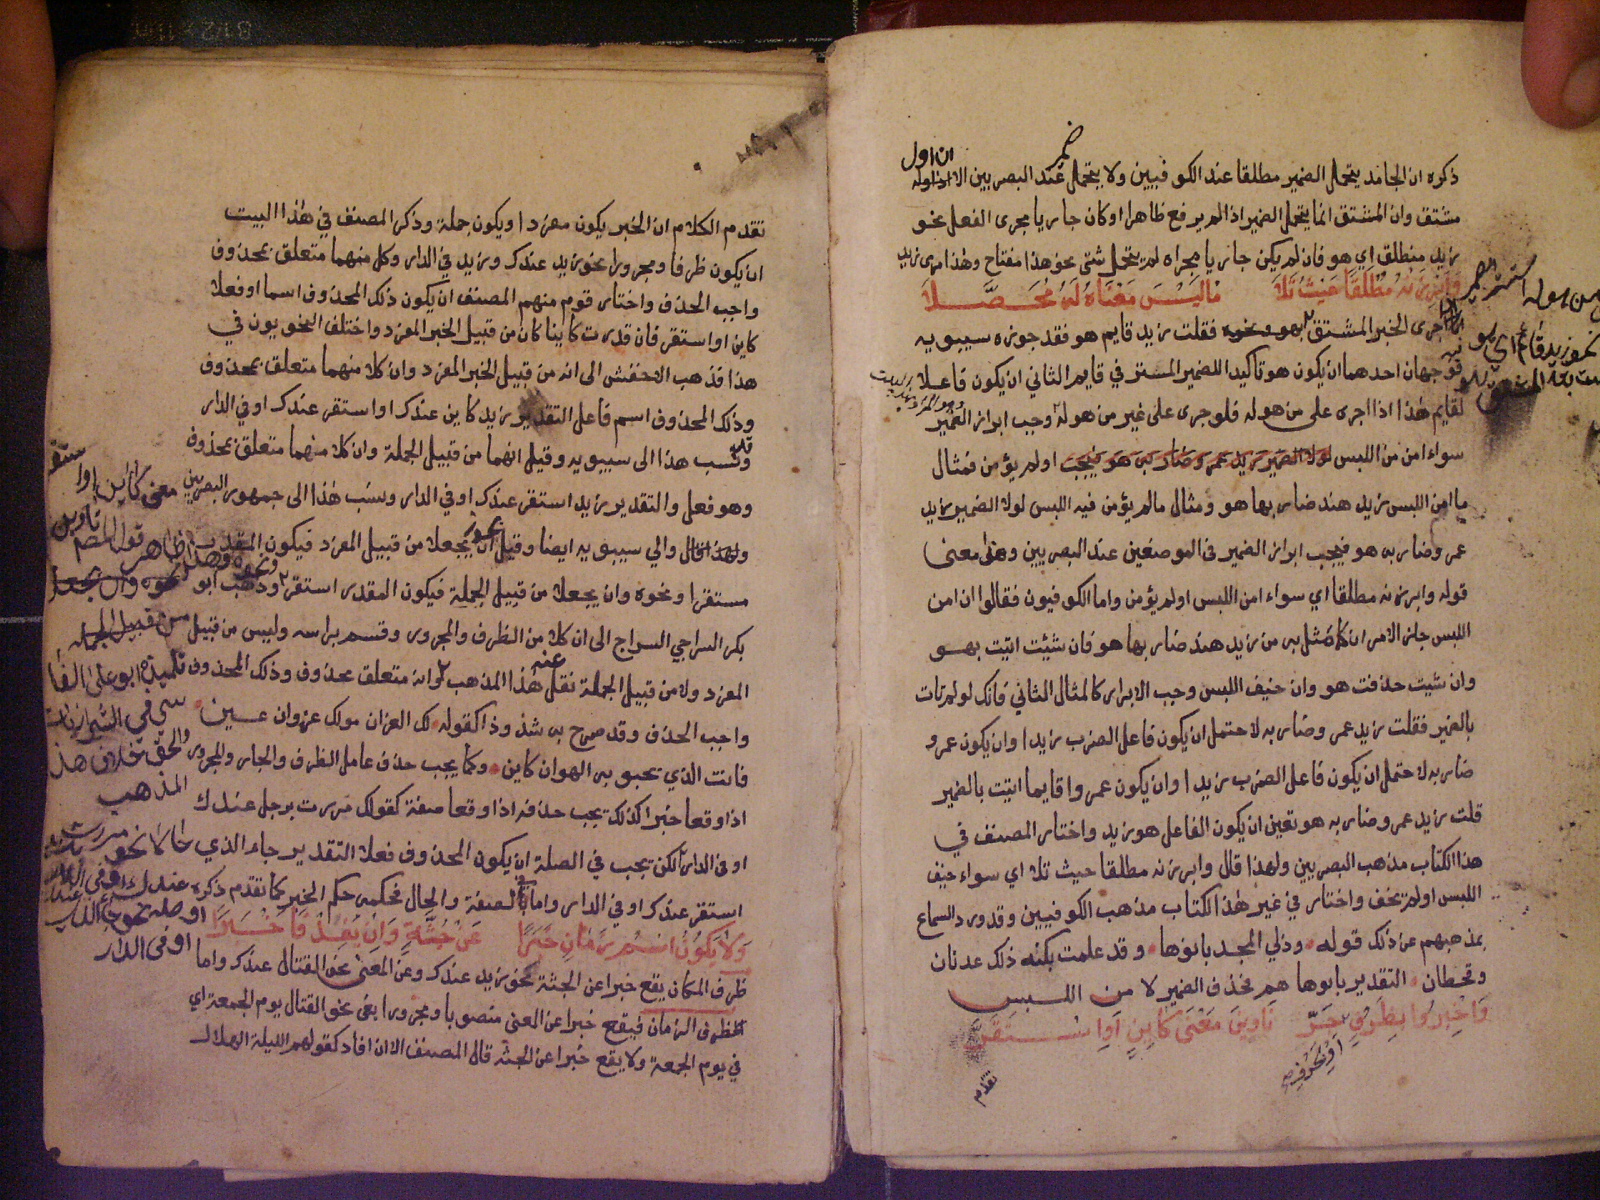 ذكره ان الجامد يتحمل الضمير مطلقا عند الكوفيين ولا يتحمل ضمير عند البصريين الا ان اول
مشتق وان المشتق انما يتحمل الضمير اذا لم يرفع ظاهرا وكان جاريا مجرى الفعل نحو
زيد منطلق اي هو فان لم يكن جاريا مجراه لم يتحمل شئ نحو هذا مفتاح وهذا مرمى زيد
وابرزنه مطلقا حيث تلا ما ليس معناه له محصلا
اذا جرى الخبر المشتق فقلت زيد قايم هو فقد جوزه سيبويه
وجهان احدهما ان يكون هو تأكيدا للضمير المستتر في قايم الثاني ان يكون فاعلا
لقايم هذا اذا اجرى على من هو له فلو جرى على غير من هو له وجب ابراز الضمير
سواء امن من اللبس او لم يؤمن فمثال
ما امن اللبس زيد هند ضاربها هو ومثال ما لم يؤمن فيه اللبس لولا الضمير زيد
عمر وضاربه هو فيجب ابراز الضمير في الموضعين عند البصريين وهذا معنى
قوله وابرزنه مطلقا اي سواء امن اللبس او لم يؤمن واما الكوفيون فقالوا ان امن
اللبس جاز الامران كما مثل به من زيد هند ضاربها هو فان شئت اتيت بهو
وان شيت حذفت هو وان خيف اللبس وجب الابراز كالمثال الثاني فانك لو لم تات
بالضمير فقلت زيد عمر وضاربه لاحتمل ان يكون فاعل الضرب زيدا وان يكون عمرو
ضاربه لاحتمل ان يكون فاعل الضرب زيدا وان يكون عمروا فايما اتيت بالضمير
قلت زيد عمر وضاربه هو تعين ان يكون الفاعل هو زيد واختار المصنف في
هذا الكتاب مذهب البصريين ولهذا قال وابرزنه مطلقا حيث تلا اي سواء خيف
اللبس او لم تخف واختار في غير هذا الكتاب مذهب الكوفيين وقد ورد السماع
بمذهبهم عن ذلك قوله وذلي المجد بانوها وقد علمت بكنه ذلك عدنان
وقحطان التقدير بانوها هم فحذف الضمير لا من اللبس
واخبروا بظرف جر ناوين معنى كاين او استقر
او بحرف
تقدم
تقدم الكلام ان الخبر يكون مفردا ويكون جملة وذكر المصنف في هذا البيت
ان يكون ظرفا ومجرورا نحو زيد عندك وزيد في الدار وكل منهما متعلق بمحذوف
واجب الحذف واختار قوم منهم المصنف ان يكون ذلك المحذوف اسما او فعلا
كاين او استقر فان قدرت كاينا كان من قبيل الخبر المفرد واختلف النحويون في
هذا فذهب الاخفش الى انه من قبيل الخبر المفرد وان كلا منهما متعلق بمحذوف
وذلك المحذوف اسم فاعل التقدير زيد كاين عندك او استقر عندك او في الدار
ونسب هذا الى سيبويه وقيل انهما من قبيل الجملة وان كلا منهما متعلق بمحذوف
وهو فعل والتقدير زيد استقر عندك او في الدار ونسب هذا الى جمهور البصريين
والى سيبويه ايضا وقيل يجوز ان يجعلا من قبيل المفرد فيكون المقدر
مستقرا ونحوه وان يجعلا من قبيل الجملة فيكون المقدر استقر وذهب ابو
بكر السراجي السراج الى ان كلا من الظرف والمجرور وقسم براسه وليس من قبيل
المفرد ولا من قبيل الجملة نقل عنه هذا المذهب تلميذه ابو على الفا
سي في الشيرازيات
والحق خلاف هذ
المذهب
وانه متعلق بمحذوف وذلك المحذوف
واجب الحذف وقد صرح به شذوذا كقوله لك العز ان مولاك عز وان عين
فانت الذي بحبوبه الهوان كاين وكما يجب حذف عامل الظرف والجار والمجرور
اذا وقعا خبرا كذلك يجب حذفه اذا وقعا صفة كقولك مررت برجل عندك
او في الدار لكن يجب في الصلة ان يكون المحذوف فعلا التقدير جاء الذي
استقر عندك او في الدار واما الصفة والحال فحكمه حكم الخبر كما تقدم ذكره
ولا يكون اسم زمان خبرا عن جثة وان يفد فاخبرا
ظرف المكان يقع خبرا عن الجثة نحو زيد عندك وعن المعنى نحو القتال عندك واما
الظرف الزمان فيقع خبرا عن المعنى منصوبا ومجرورا بفي نحو القتال يوم الجمعة اي
في يوم الجمعة ولا يقع خبرا عن الجثة قال المصنف الا ان افاد كقولهم الليلة الهلال